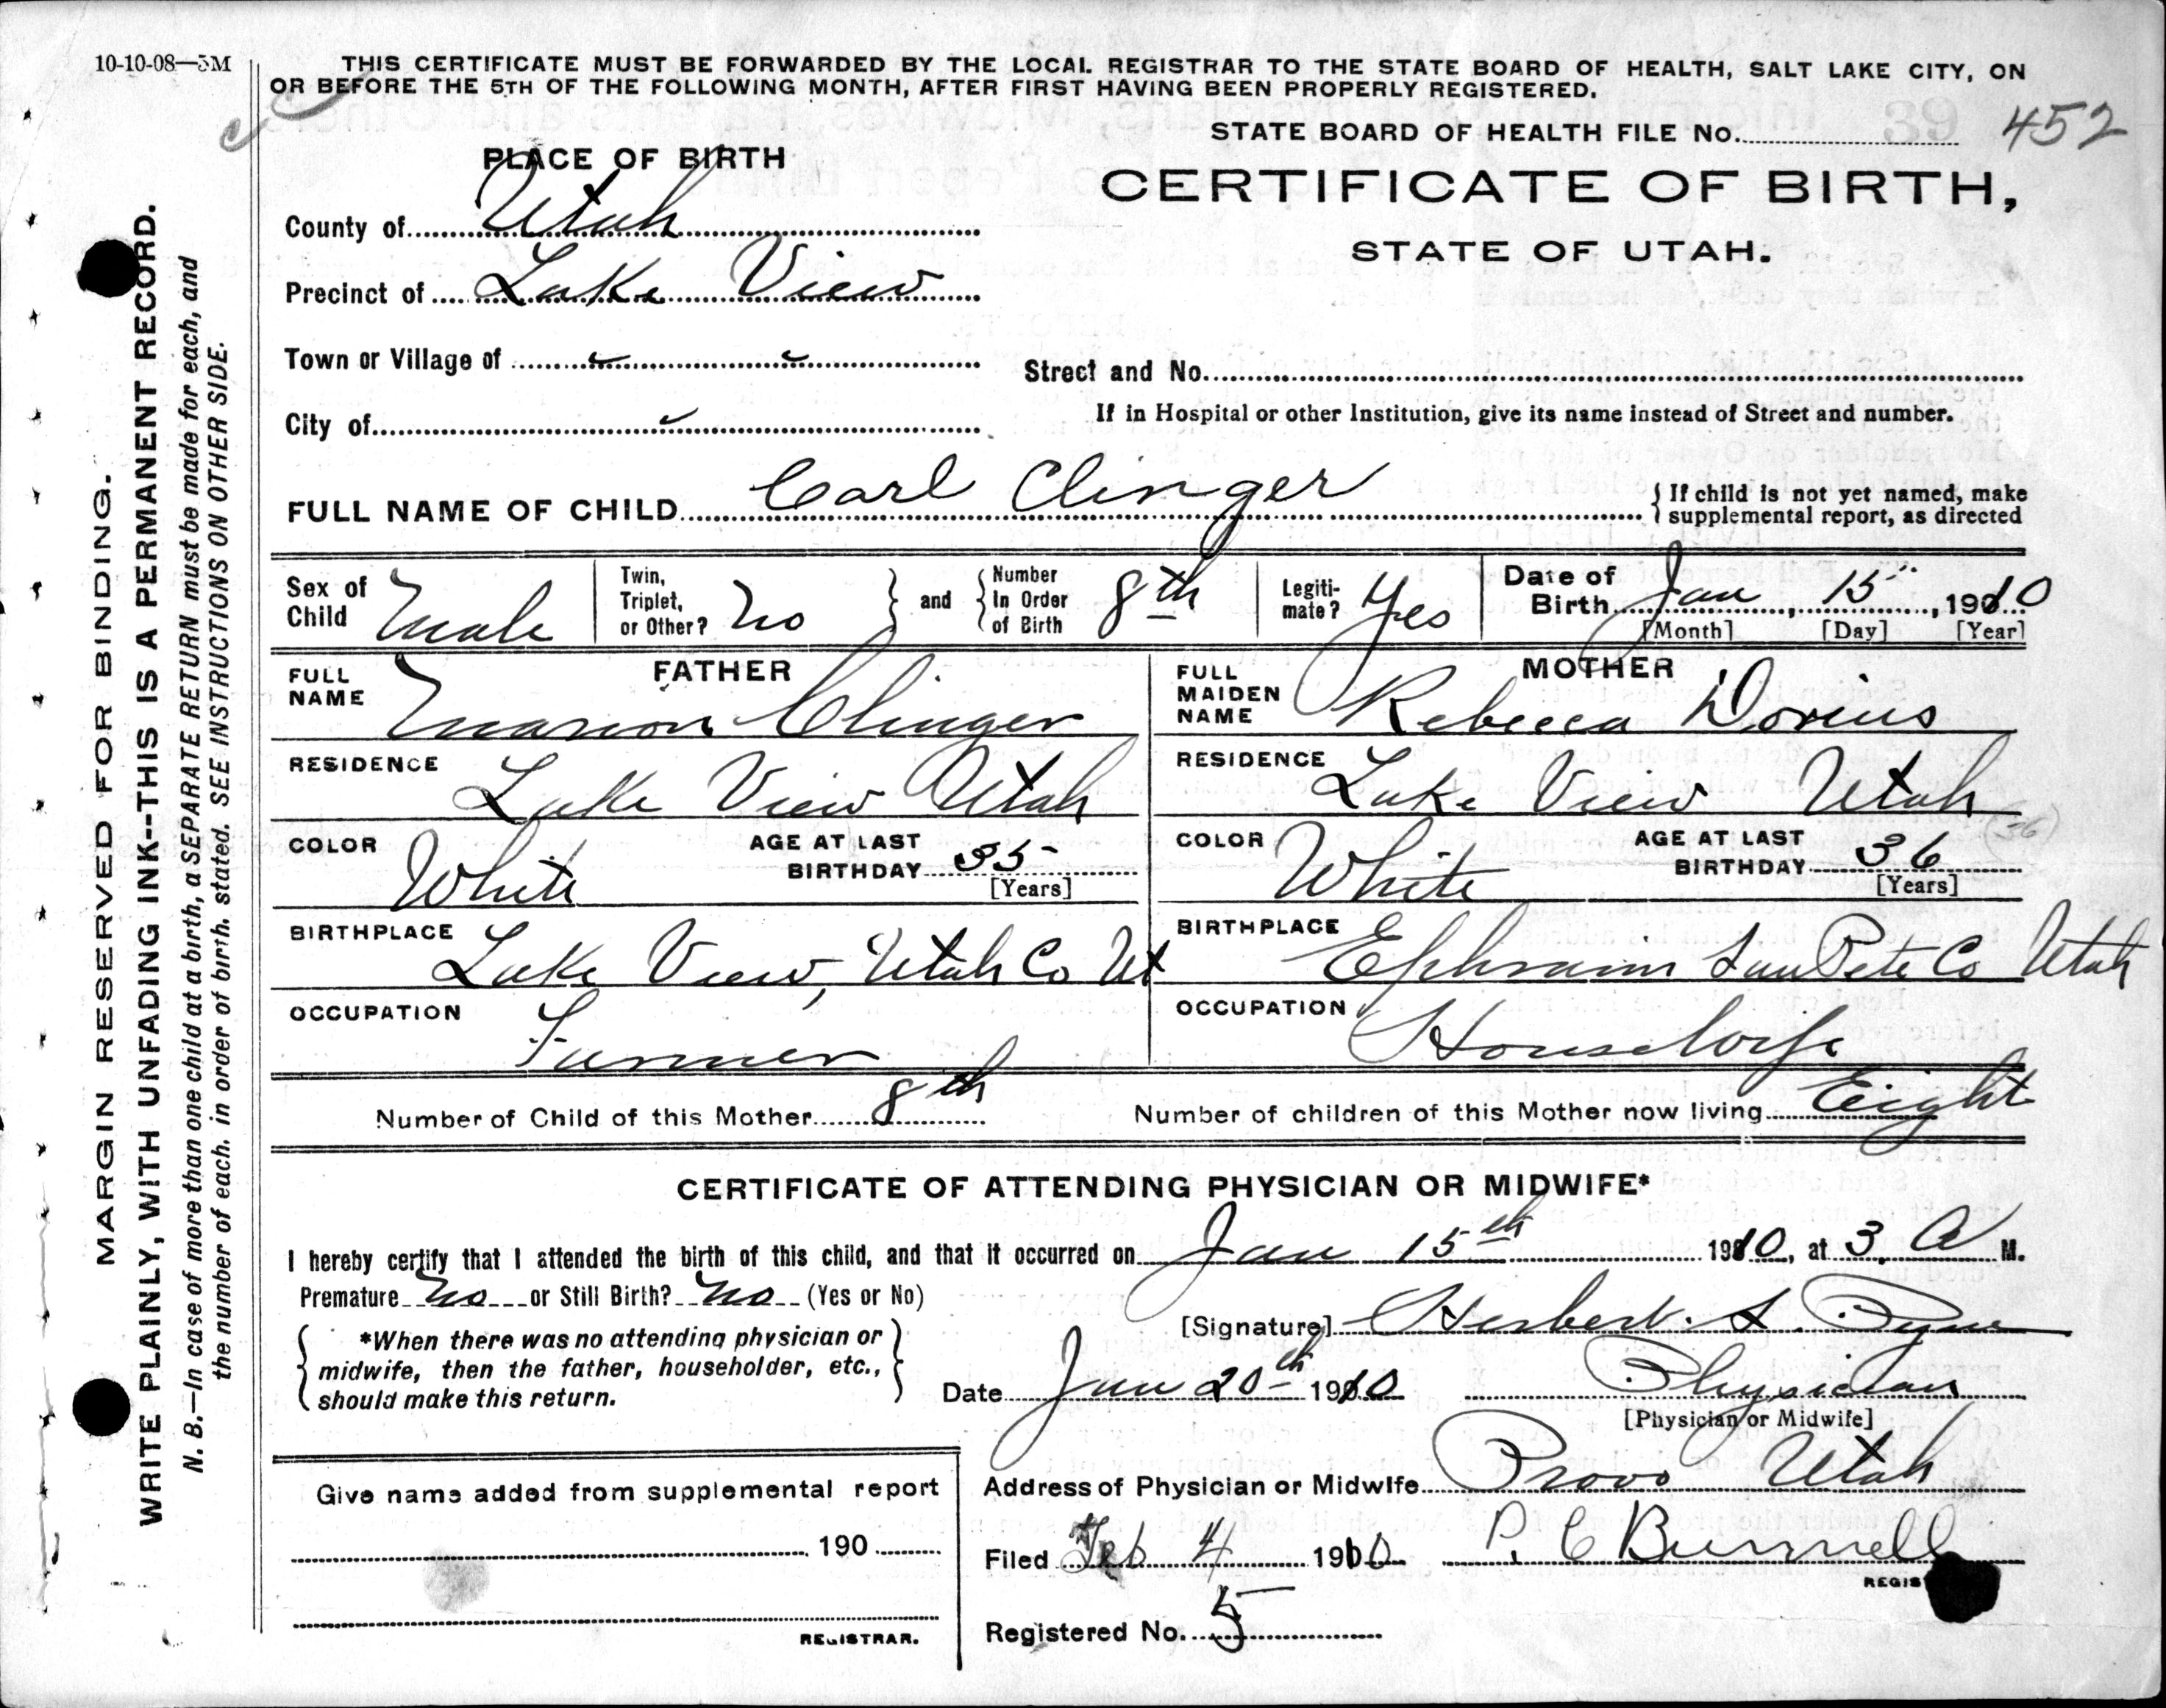 10-10-08—5M
THIS CERTIFICATE MUST BE FORWARDED BY THE LOCAL REGISTRAR TO THE STATE BOARD OF HEALTH, SALT LAKE CITY, ON
OR BEFORE THE 5TH OF THE FOLLOWING MONTH, AFTER FIRST HAVING BEEN PROPERLY REGISTERED.
STATE BOARD OF HEALTH FILE No. 39 452
PLACE OF BIRTH
CERTIFICATE OF BIRTH,
STATE OF UTAH.
County of Utah
Precinct of Lake View
Town or Village of
Street and No.
City of
If in Hospital or other Institution, give its name instead of Street and number.
FULL NAME OF CHILD Carl Clinger
{ If child is not yet named, make
supplemental report, as directed
Sex of Child Male
Twin, Triplet, or Other? No } and { Number In Order of Birth 8th
Legiti-mate? Yes
Date of Birth Jan, 15, 1910
[Month] [Day] [Year]
FATHER
FULL NAME Marion Clinger
RESIDENCE Lake View Utah
COLOR White
AGE AT LAST BIRTHDAY 35
[Years]
BIRTHPLACE Lake View, Utah Co Ut
OCCUPATION Farmer
MOTHER
FULL MAIDEN NAME Rebecca Dorius
RESIDENCE Lake View Utah
COLOR White
AGE AT LAST BIRTHDAY 36 (36)
[Years]
BIRTHPLACE Ephraim San Pete Co Utah
OCCUPATION Housewife
Number of Child of this Mother 8th
Number of children of this Mother now living Eight
CERTIFICATE OF ATTENDING PHYSICIAN OR MIDWIFE*
I hereby certify that I attended the birth of this child, and that it occurred on Jan 15th 1910, at 3 A M.
Premature No or Still Birth? No (Yes or No)
[Signature] Herbert S. Pyne
{ *When there was no attending physician or
midwife, then the father, householder, etc.,
should make this return. }
Date Jan 20th 1910 Physician
[Physician or Midwife]
Address of Physician or Midwife Provo Utah
Filed Feb 4 1910 P. C Bunnell
REGIS
Registered No. 5
Give name added from supplemental report
190
REGISTRAR.
MARGIN RESERVED FOR BINDING.
WRITE PLAINLY, WITH UNFADING INK--THIS IS A PERMANENT RECORD.
N. B.—In case of more than one child at a birth, a SEPARATE RETURN must be made for each, and
the number of each, in order of birth, stated. SEE INSTRUCTIONS ON OTHER SIDE.